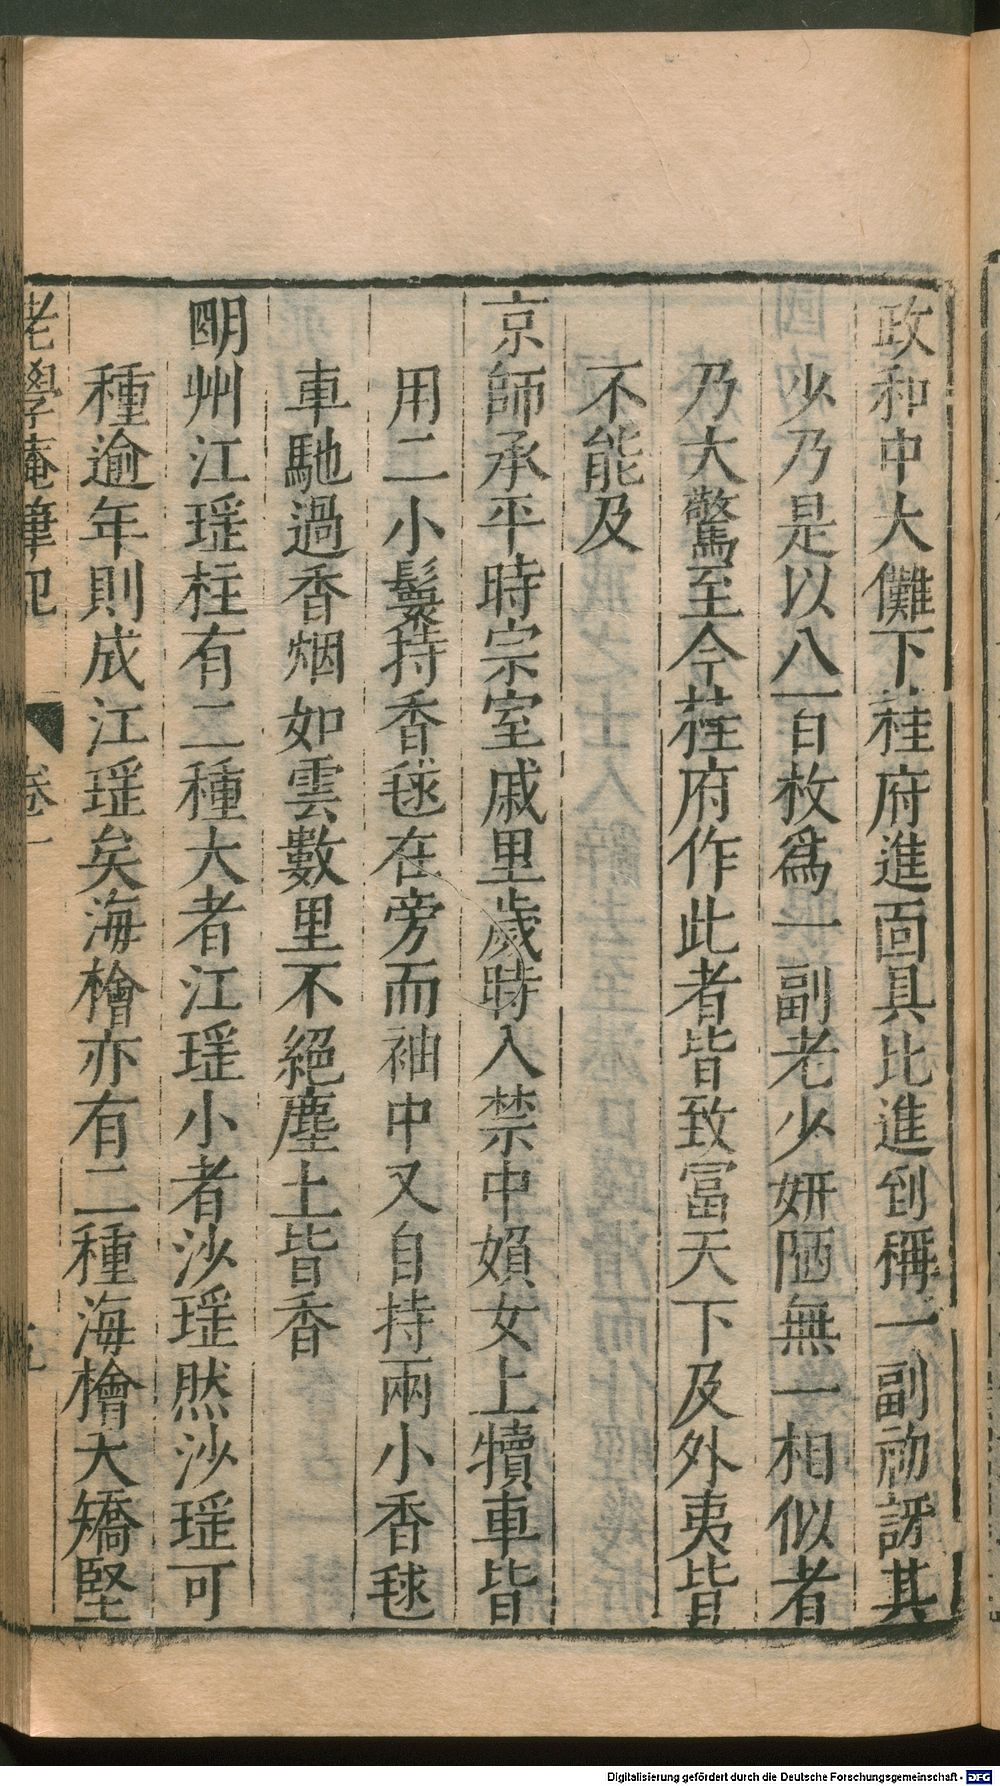 政和中大儺下桂府進面具比進到稱一副初訝其
少乃是以八百枚爲一副老少妍陋無一相似者
乃大驚至今桂府作此者皆致富天下及外夷皆
不能及
京師承平時宗室戚里歲時入禁中婦女上犢車皆
用二小鬟持香毬在旁而袖中又自持兩小香毬
車馳過香烟如雲數里不絕塵土皆香
明州江瑶柱有二種大者江瑶小者沙瑶然沙瑶可
種逾年則成江瑶矣海檜亦有二種海檜夭矯堅
老學庵筆記 卷一
Digitalisierung gefördert durch die Deutsche Forschungsgemeinschaft - DFG